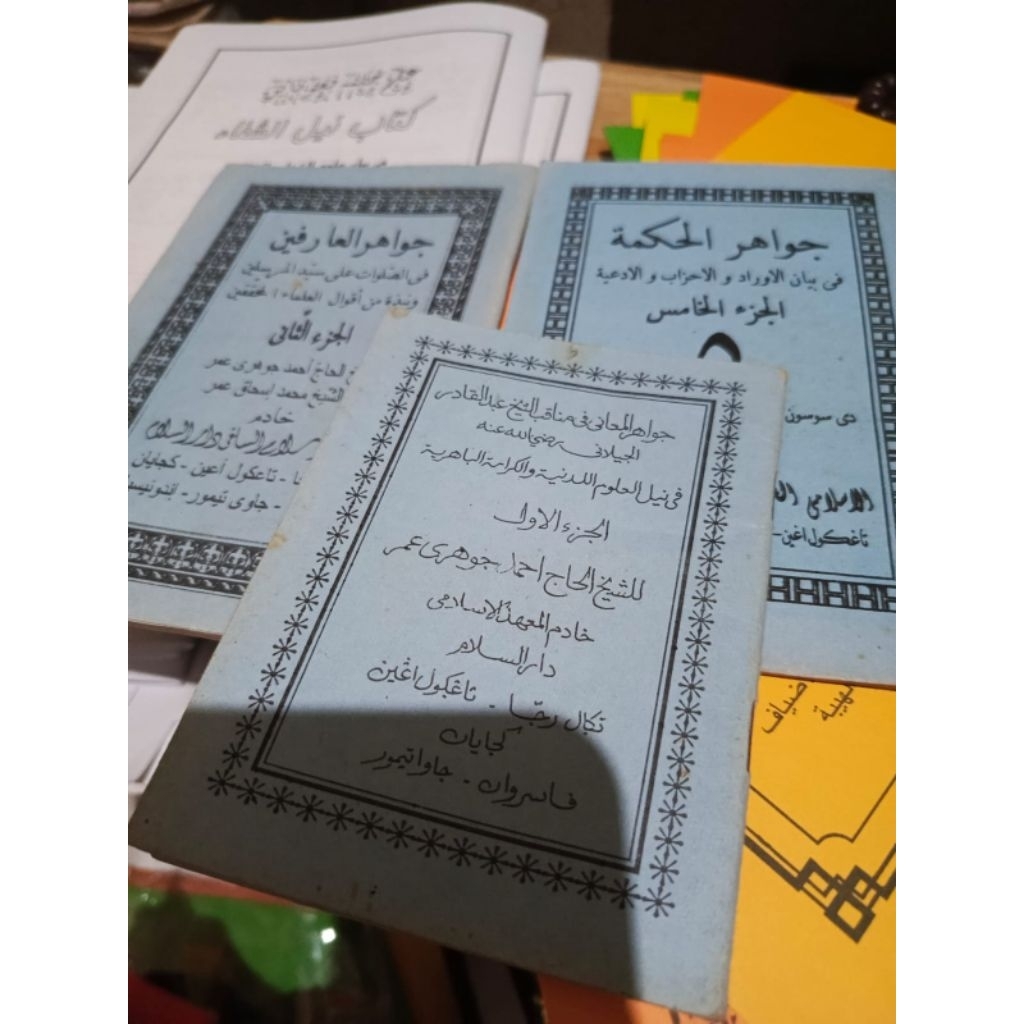 كتاب نيل الشفاء
جواهر العارفين
فى الصلوات على سيد المرسلين
ونبذة من أقوال العلماء المحققين
الجزء الثانى
الحاج أحمد جوهرى عمر
الشيخ محمد إسحاق عمر
خادم
دار السلام
تاڠكول أڠين - كجايان
- جاوى تيمور - اندونيس
جواهر الحكمة
فى بيان الاوراد و الاحزاب و الادعية
الجزء الخامس
٥
دى سوسون
الاسلامى
تاڠكول اڠين -
جواهر المعانى فى مناقب الشيخ عبد القادر
الجيلانى رضي الله عنه
فى نيل العلوم اللدنية والكرامة الباهرية
الجزء الاول
للشيخ الحاج احمد جوهرى عمر
خادم المعهد الاسلامى
دار السلام
تكال رجا - تاڠكول اڠين
كجايان
فاسروان - جاوا تيمور